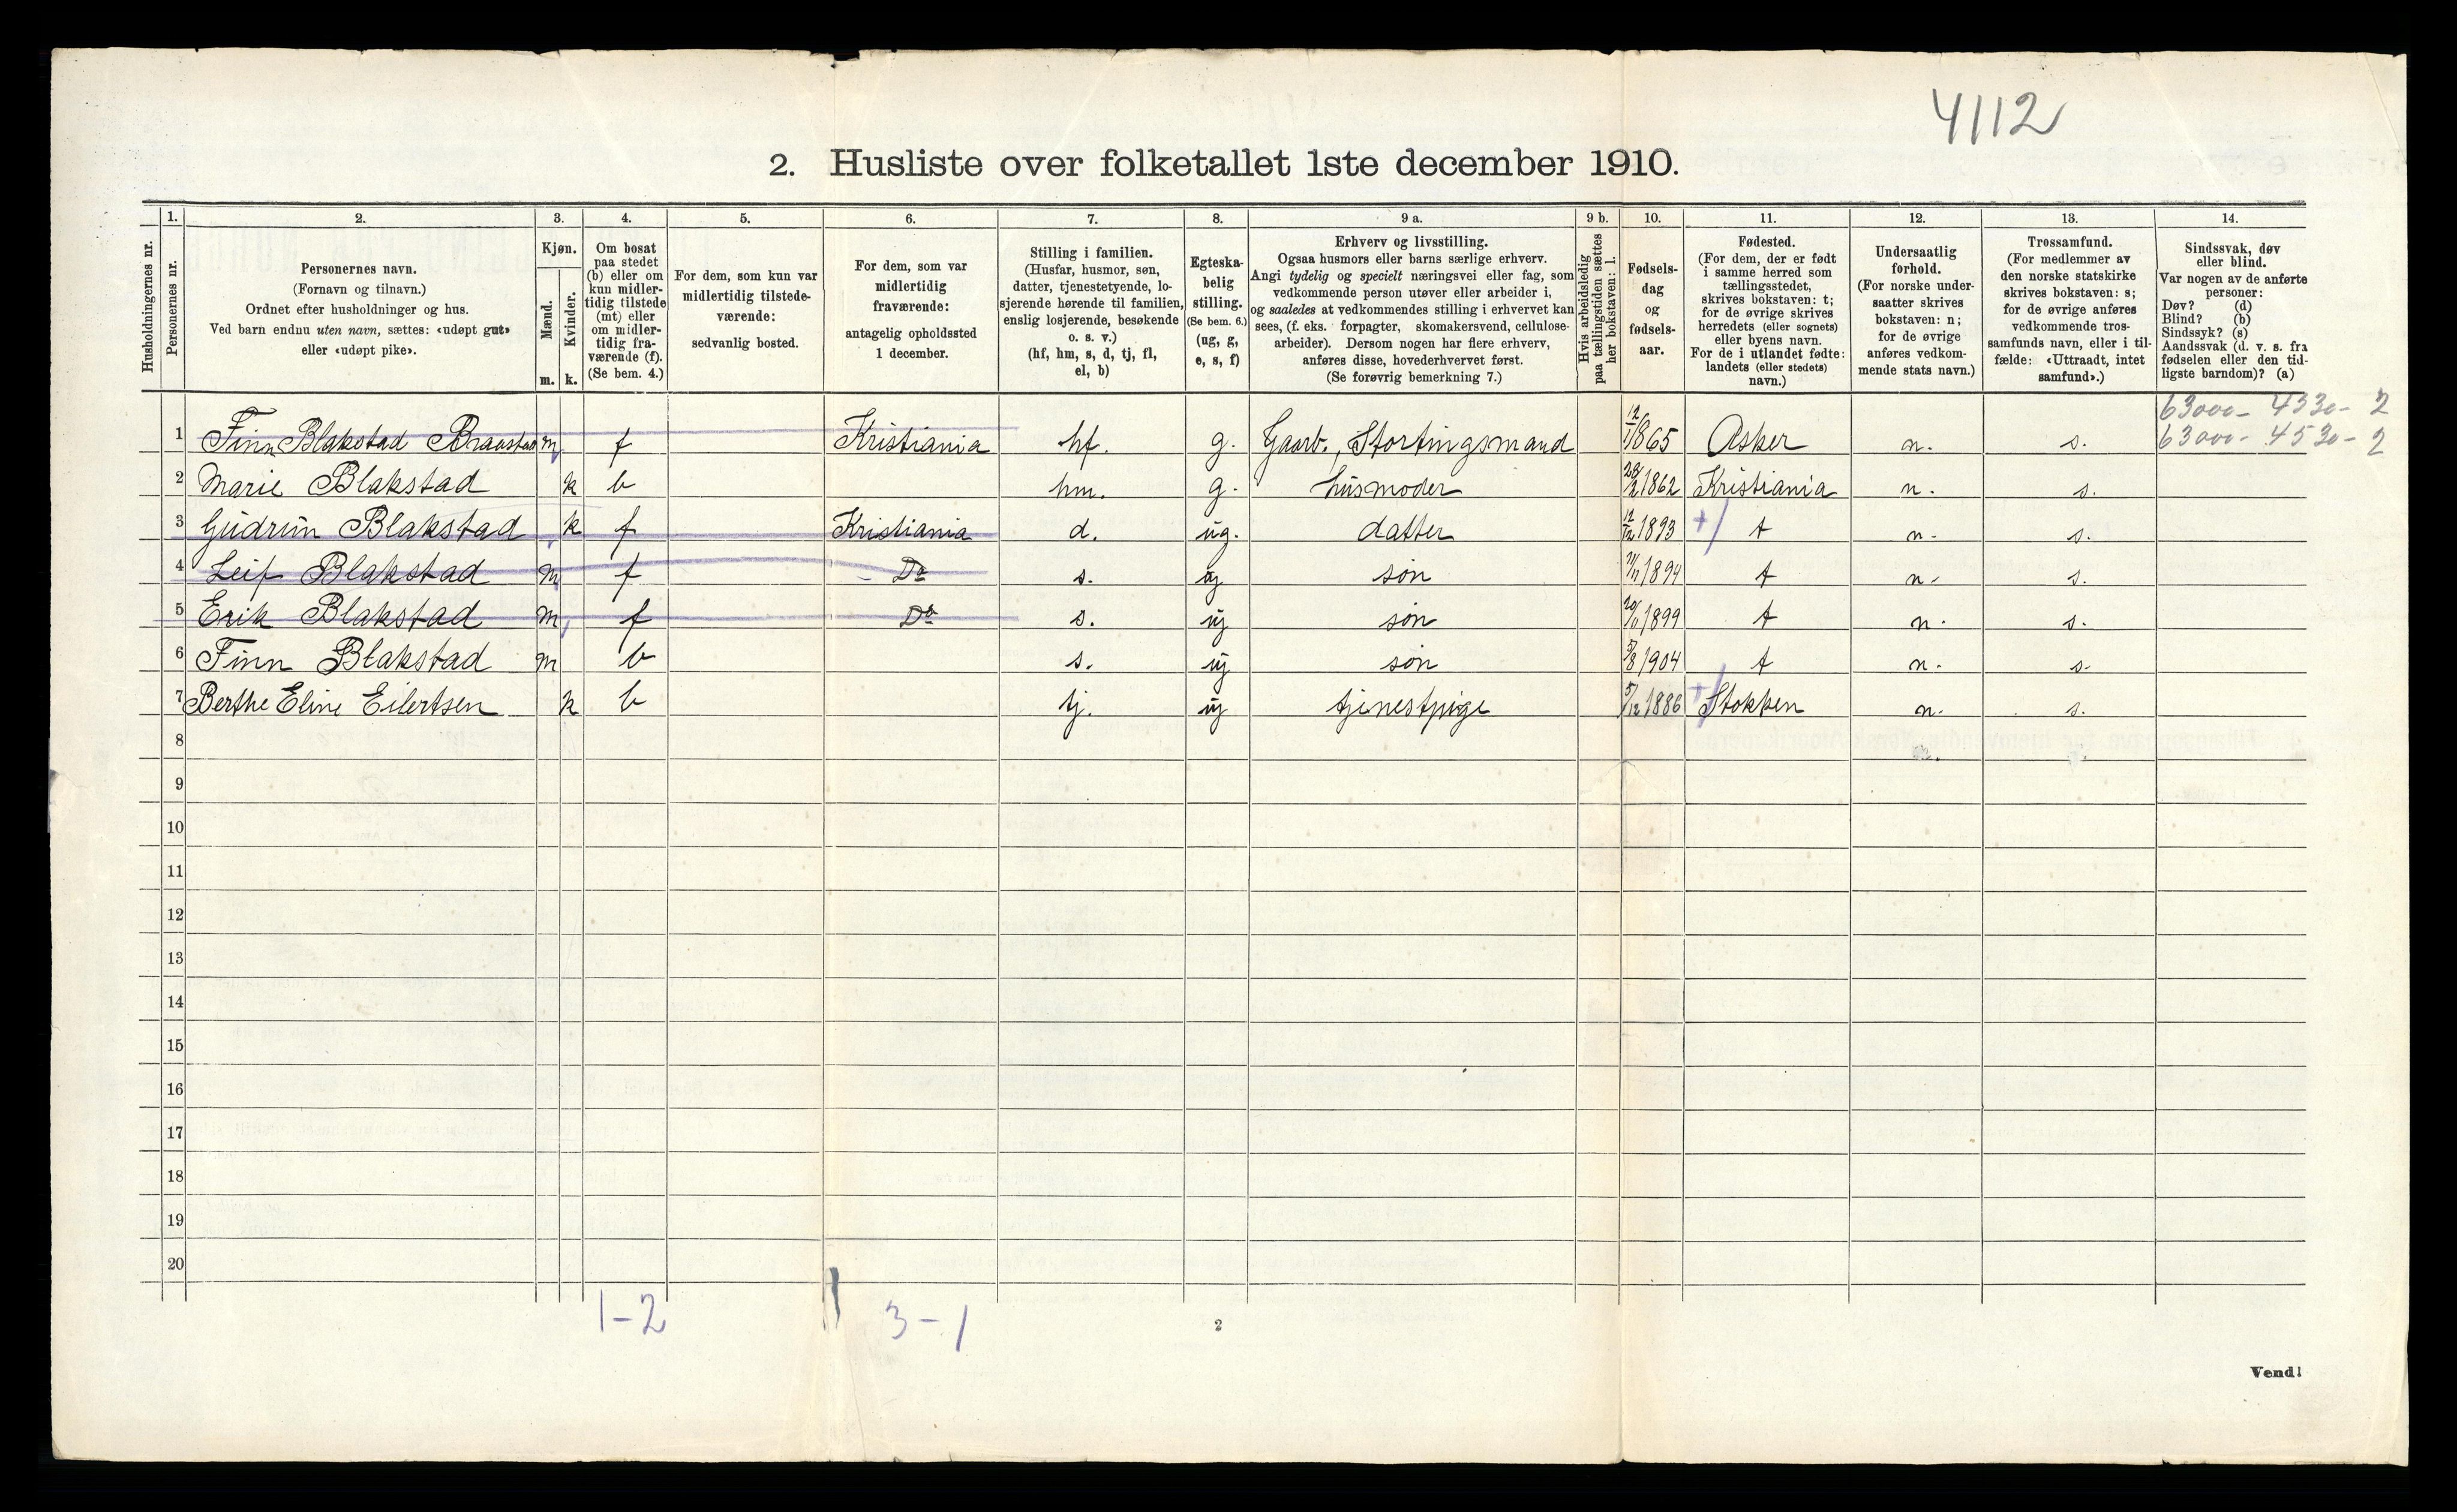 4112
2. Husliste over folketallet 1ste december 1910.
1. 2. 3. 4. 5. 6. 7. 8. 9 a. 9 b. 10. 11. 12. 13. 14.
Husholdningernes nr.
Personernes nr.
Personernes navn.
(Fornavn og tilnavn.)
Ordnet efter husholdninger og hus.
Ved barn endnu uten navn, sættes: «udøpt gut»
eller «udøpt pike».
Kjøn.
Mænd.
Kvinder.
m. k.
Om bosat
paa stedet
(b) eller om
kun midler-
tidig tilstede
(mt) eller
om midler-
tidig fra-
værende (f).
(Se bem. 4.)
For dem, som kun var
midlertidig tilstede-
værende:
sedvanlig bosted.
For dem, som var
midlertidig
fraværende:
antagelig opholdssted
1 december.
Stilling i familien.
(Husfar, husmor, søn,
datter, tjenestetyende, lo-
sjerende hørende til familien,
enslig losjerende, besøkende
o. s. v.)
(hf, hm, s, d, tj, fl,
el, b)
Egteska-
belig
stilling.
(Se bem. 6.)
(ug, g,
e, s, f)
Erhverv og livsstilling.
Ogsaa husmors eller barns særlige erhverv.
Angi tydelig og specielt næringsvei eller fag, som
vedkommende person utøver eller arbeider i,
og saaledes at vedkommendes stilling i erhvervet kan
sees, (f. eks. forpagter, skomakersvend, cellulose-
arbeider). Dersom nogen har flere erhverv,
anføres disse, hovederhvervet først.
(Se forøvrig bemerkning 7.)
Hvis arbeidsledig
paa tællingstiden sættes
her bokstaven: l.
Fødsels-
dag
og
fødsels-
aar.
Fødested.
(For dem, der er født
i samme herred som
tællingsstedet,
skrives bokstaven: t;
for de øvrige skrives
herredets (eller sognets)
eller byens navn.
For de i utlandet fødte:
landets (eller stedets)
navn.)
Undersaatlig
forhold.
(For norske under-
saatter skrives
bokstaven: n;
for de øvrige
anføres vedkom-
mende stats navn.)
Trossamfund.
(For medlemmer av
den norske statskirke
skrives bokstaven: s;
for de øvrige anføres
vedkommende tros-
samfunds navn, eller i til-
fælde: «Uttraadt, intet
samfund».)
Sindssvak, døv
eller blind.
Var nogen av de anførte
personer:
Døv? (d)
Blind? (b)
Sindssyk? (s)
Aandssvak (d. v. s. fra
fødselen eller den tid-
ligste barndom)? (a)
63000- 4330- 2
1 Finn Blakstad Braastad m f Kristiania hf. g. Gaarb., Stortingsmand 12/1 1865 Asker n. s. 63000- 4530- 2
2 Marie Blakstad k b hm. g. husmoder 28/2 1862 Kristiania n. s.
3 Gudrun Blakstad k f Kristiania d. ug. datter 12/12 1893 t n. s.
4 Leif Blakstad m f Do s. ug søn 11/11 1894 t n. s.
5 Erik Blakstad m f Do s. ug søn 20/11 1899 t n. s.
6 Finn Blakstad m b s. ug søn 3/8 1904 t n. s.
7 Berthe Eline Eilertsen k b tj. ug tjenestpige 5/12 1886 Stokken n. s.
8
9
10
11
12
13
14
15
16
17
18
19
20
1-2 3-1
2
Vend!